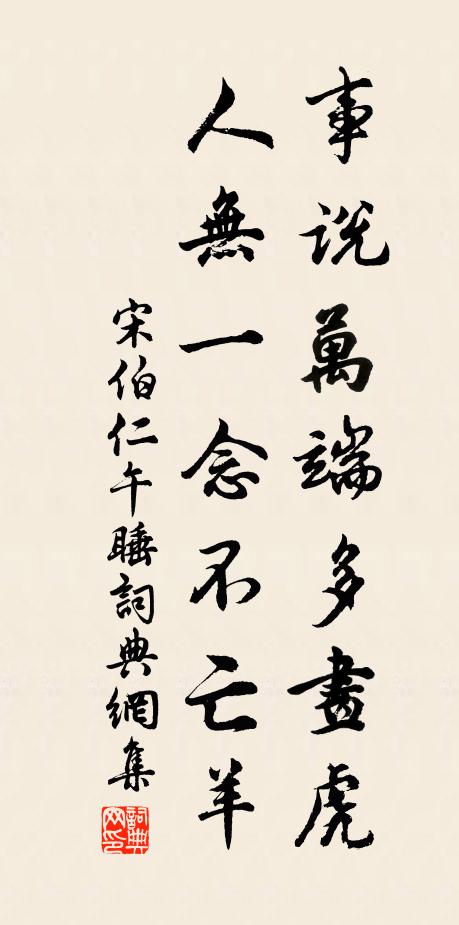 事說萬端多畫虎
人無一念不亡羊
宋伯仁午睡詞典網集
詞典网印